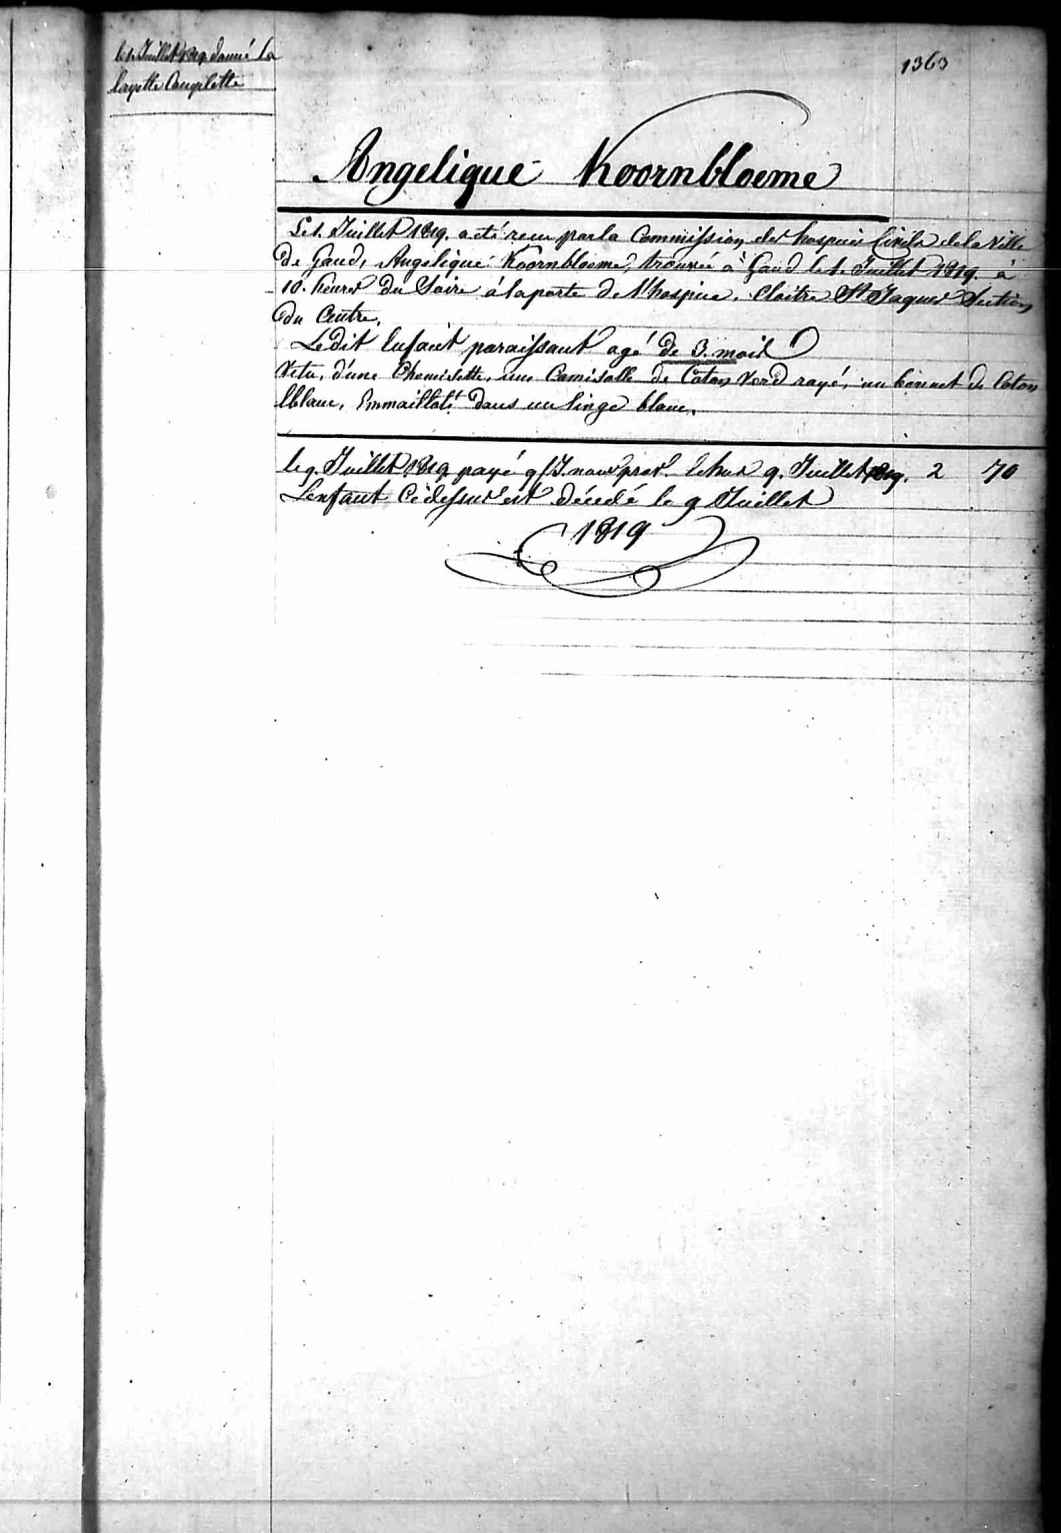 le 1. Juillet 1819 donné la
layette Complette
1363
Angelique Koornbloeme
Le 1. Juillet 1819. a eté recu par la Commission des hospices Civils de la Ville
de Gand, Angelique Koornbloeme, trouvée à Gand le 1. Juillet 1819. à
10. heures du Soire à la porte de l'hospice. Cloitre St Jaques Section
du Centre.
Ledit Enfant paraissant agé de 3. mois
Vetu, d'une Chemisette, une Camisolle de Coton Verd rayé, un bonnet de Coton
blanc, Emmailloté dans un linge blanc.
le 9. Juillet 1819 payé 9/J. nour 9. Juillet 1819. 2 70
L'enfant Cidessus est décedé le 9 Juillet
1819